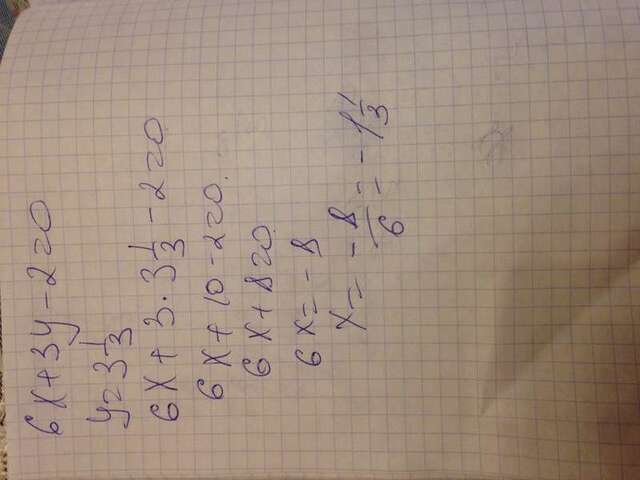 6x+3y-2=0
y=3 1/3
6x+3·3 1/3-2=0
6x+10-2=0.
6x+8=0
6x=-8
x=-8/6=-1 1/3